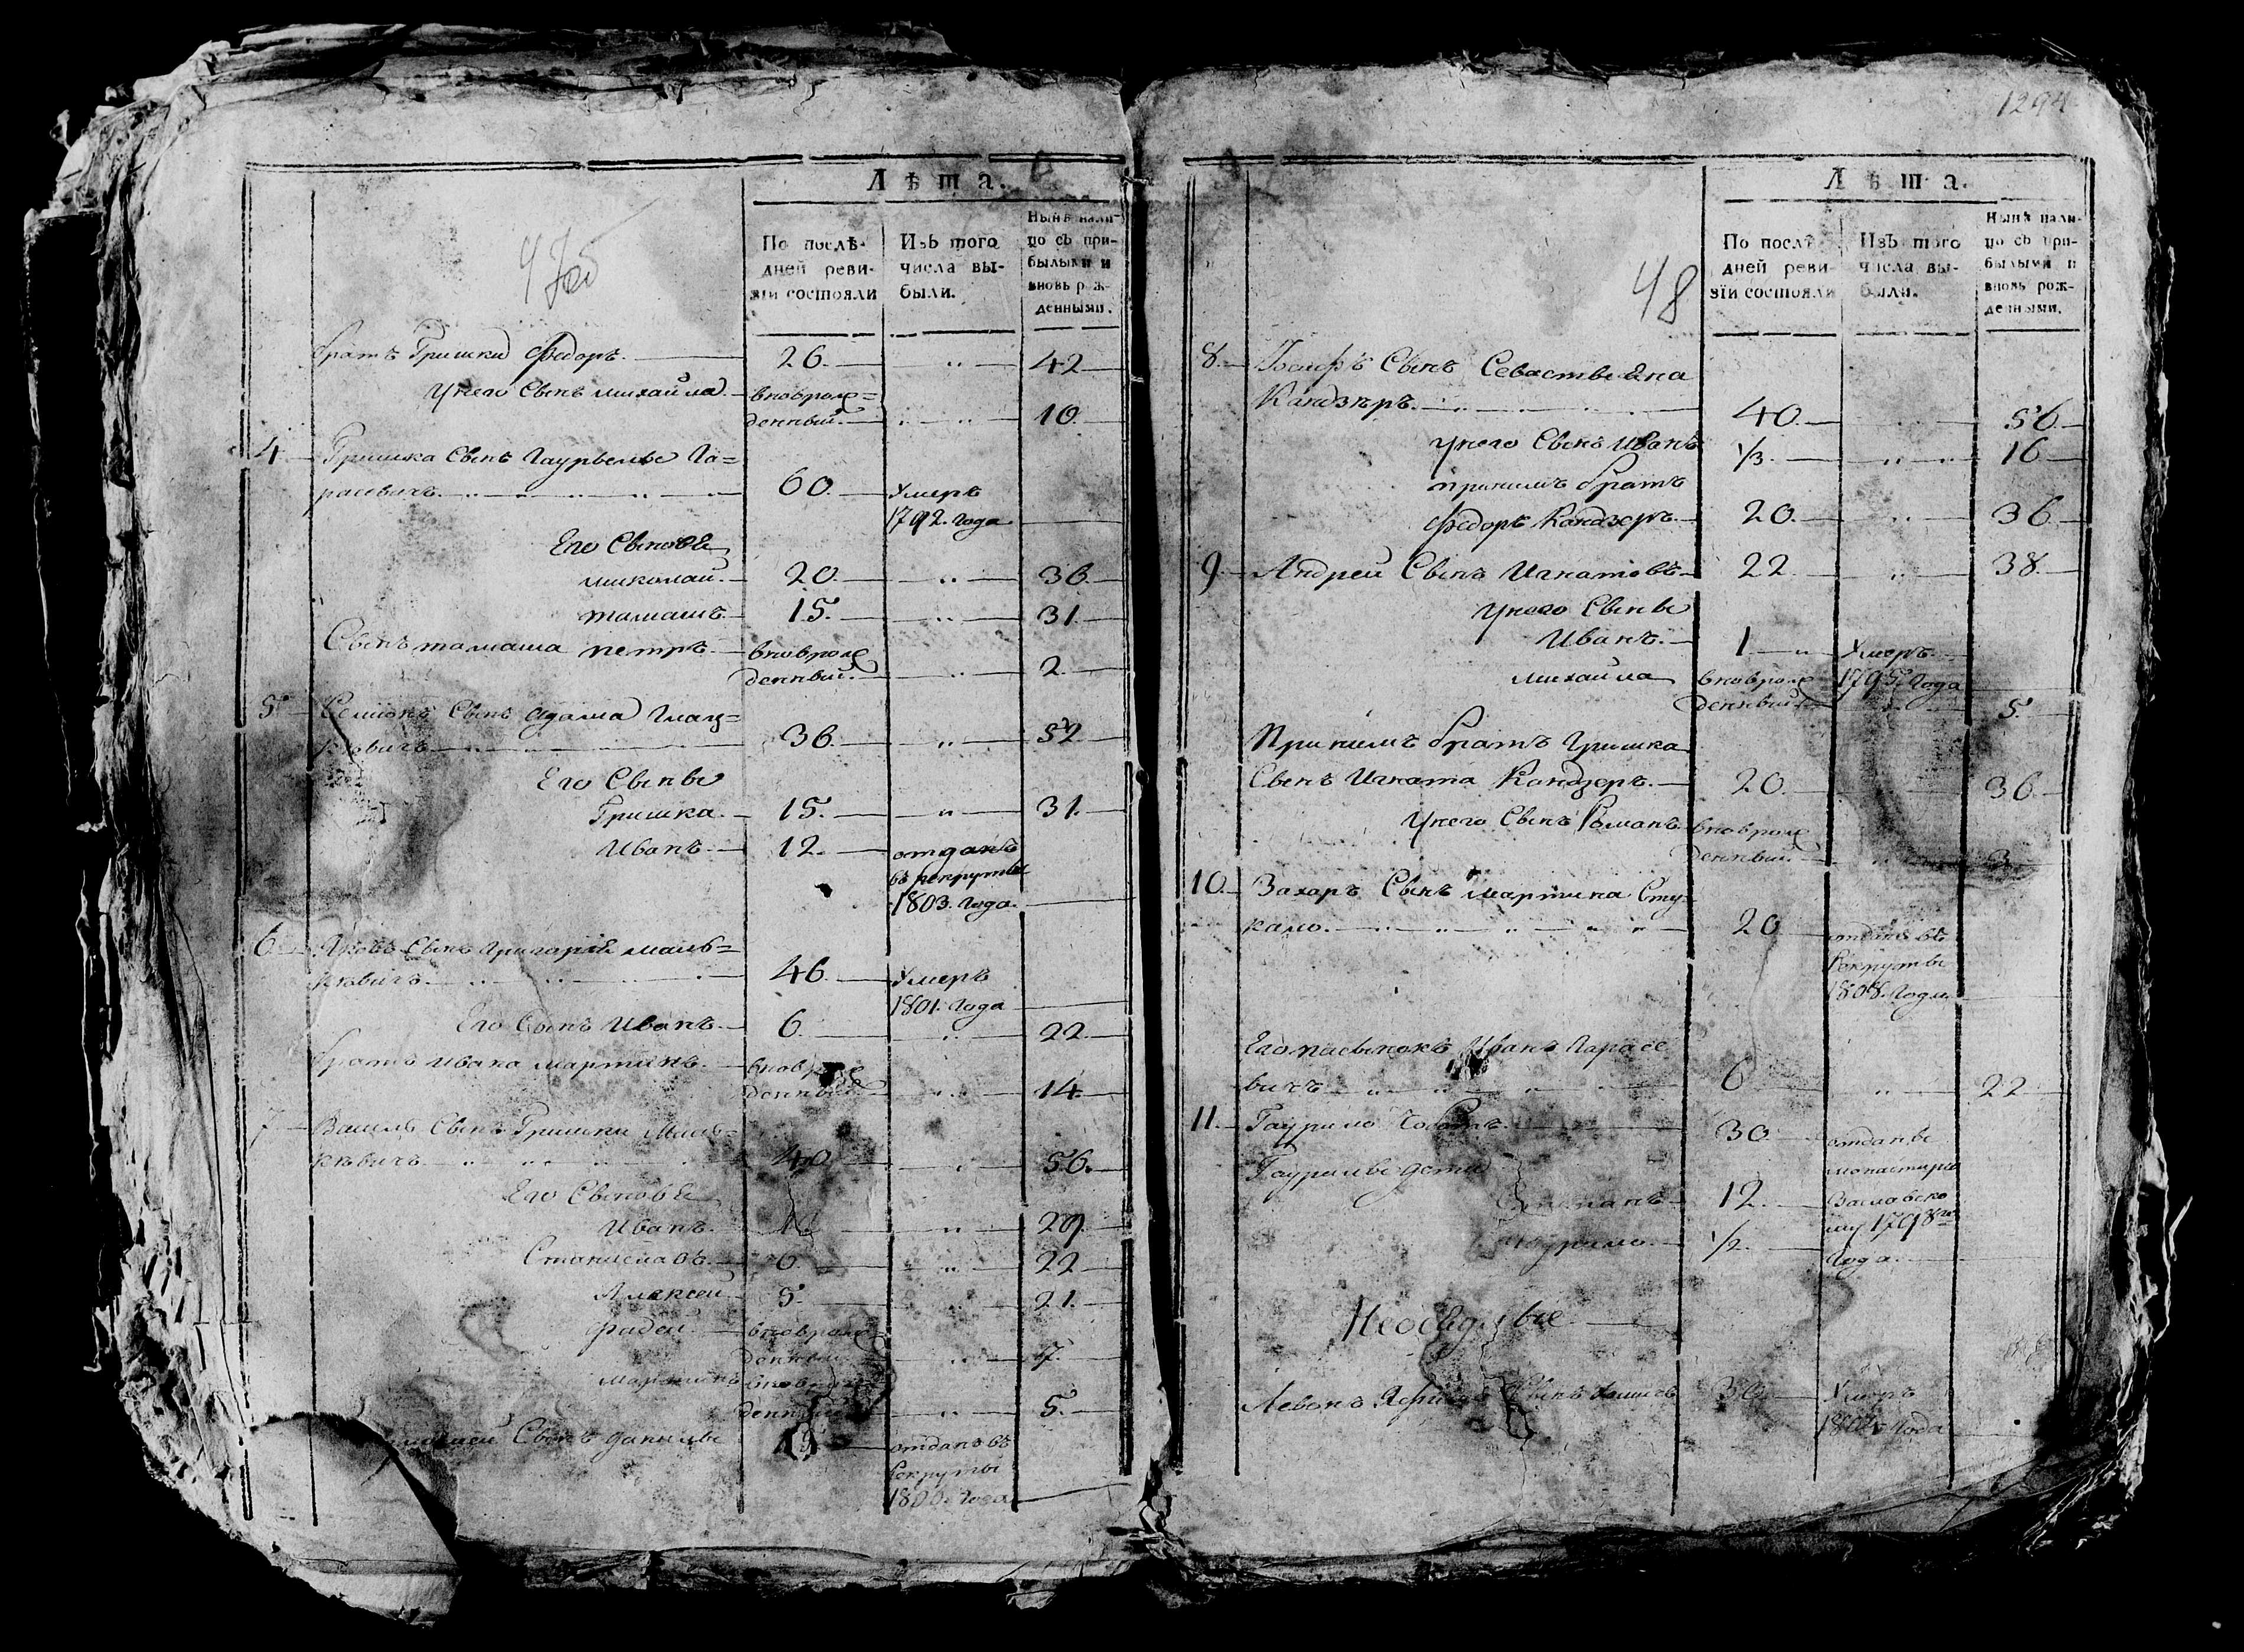 Лѣта.
По послѣ-
дней реви-
зіи состояли
Изъ того
числа вы-
были.
Нынѣ нали-
цо съ при-
былыми и
вновь рож-
денными.
братъ Гришки Федоръ. 26. 42
Унего Сынъ михайла. вноврож=
денный. 10.
4 Гришка Сынъ Гаурылы Га=
расевичъ. 60. Умеръ
1792. года
Его Сыновѣ
миколай. 20. 36.
тамашъ. 15. 31.
Сынъ тамаша петръ. вноврож
денный. 2.
5 Семионъ Сынъ адама
36. 52
Его Сыны
Гришка. 15. 31.
Иванъ. 12. отданъ
въ рекруты
1803. года.
6 Сынъ Григория маль=
кѣвичъ. 46. Умеръ
1801. года
Его Сынъ Иванъ. 6 22
братъ Ивана мартинъ. вноврож
денный. 14.
7 Василь Сынъ Гришки Маль=
кѣвичъ. 40. 56.
Его Сыновѣ
Иванъ. 29.
Станиславъ. 6. 22
Алексей 5. 21.
фадей. вноврож
денный. 7.
мартинъ вноврож
денный 5.
Сынъ данилы отданъ въ
рекруты
года
1294
48
Лѣта.
По послѣ-
дней реви-
зіи состояли
Изъ того
числа вы-
были.
Нынѣ нали-
цо съ при-
былыми и
вновь рож-
денными.
8. Сынъ Севастьяна
Кандзѣръ. 40. 56.
унего Сынъ Иванъ 1/3. 16
принемъ братъ
Федоръ Кандзеръ. 20. 36
9. Андрей Сынъ Игнатовъ 22. 38.
Унего Сыны
Иванъ. 1 Умеръ
1795. года
михайла вноврож
денный 5.
Принемъ братъ Гришка
Сынъ Игната Кандзеръ. 20. 36.
Унего Сынъ Романъ вноврож
денный. 3
10. Захаръ Сынъ мартина Сту
кало. 20 отданъ въ
Рекруты
1808. Года
Его пасынокъ Иванъ Гарасе
вичъ 6 22
11. Гаурило 30. отданы
монастырю
Гаурилы дети
12. Заславско
му 1798го
1/2. года.
Неоседлые
Левонъ Сынъ Умеръ
года